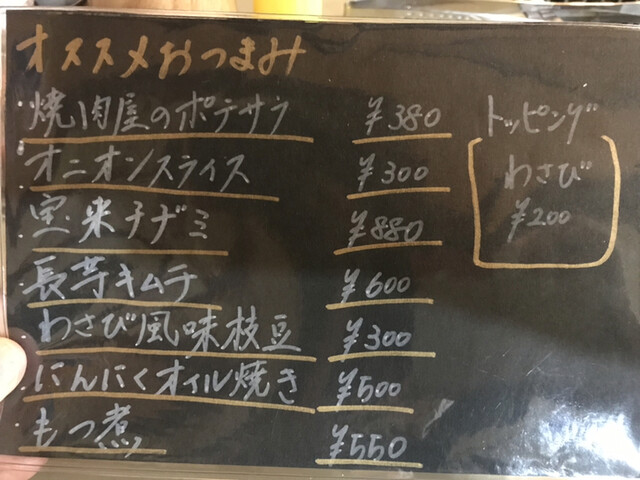 オススメおつまみ
焼肉屋のポテサラ ¥380
オニオンスライス ¥300
宝来チヂミ ¥880
長芋キムチ ¥600
わさび風味枝豆 ¥300
にんにくオイル焼き ¥500
もつ煮 ¥550
トッピング
わさび
¥200